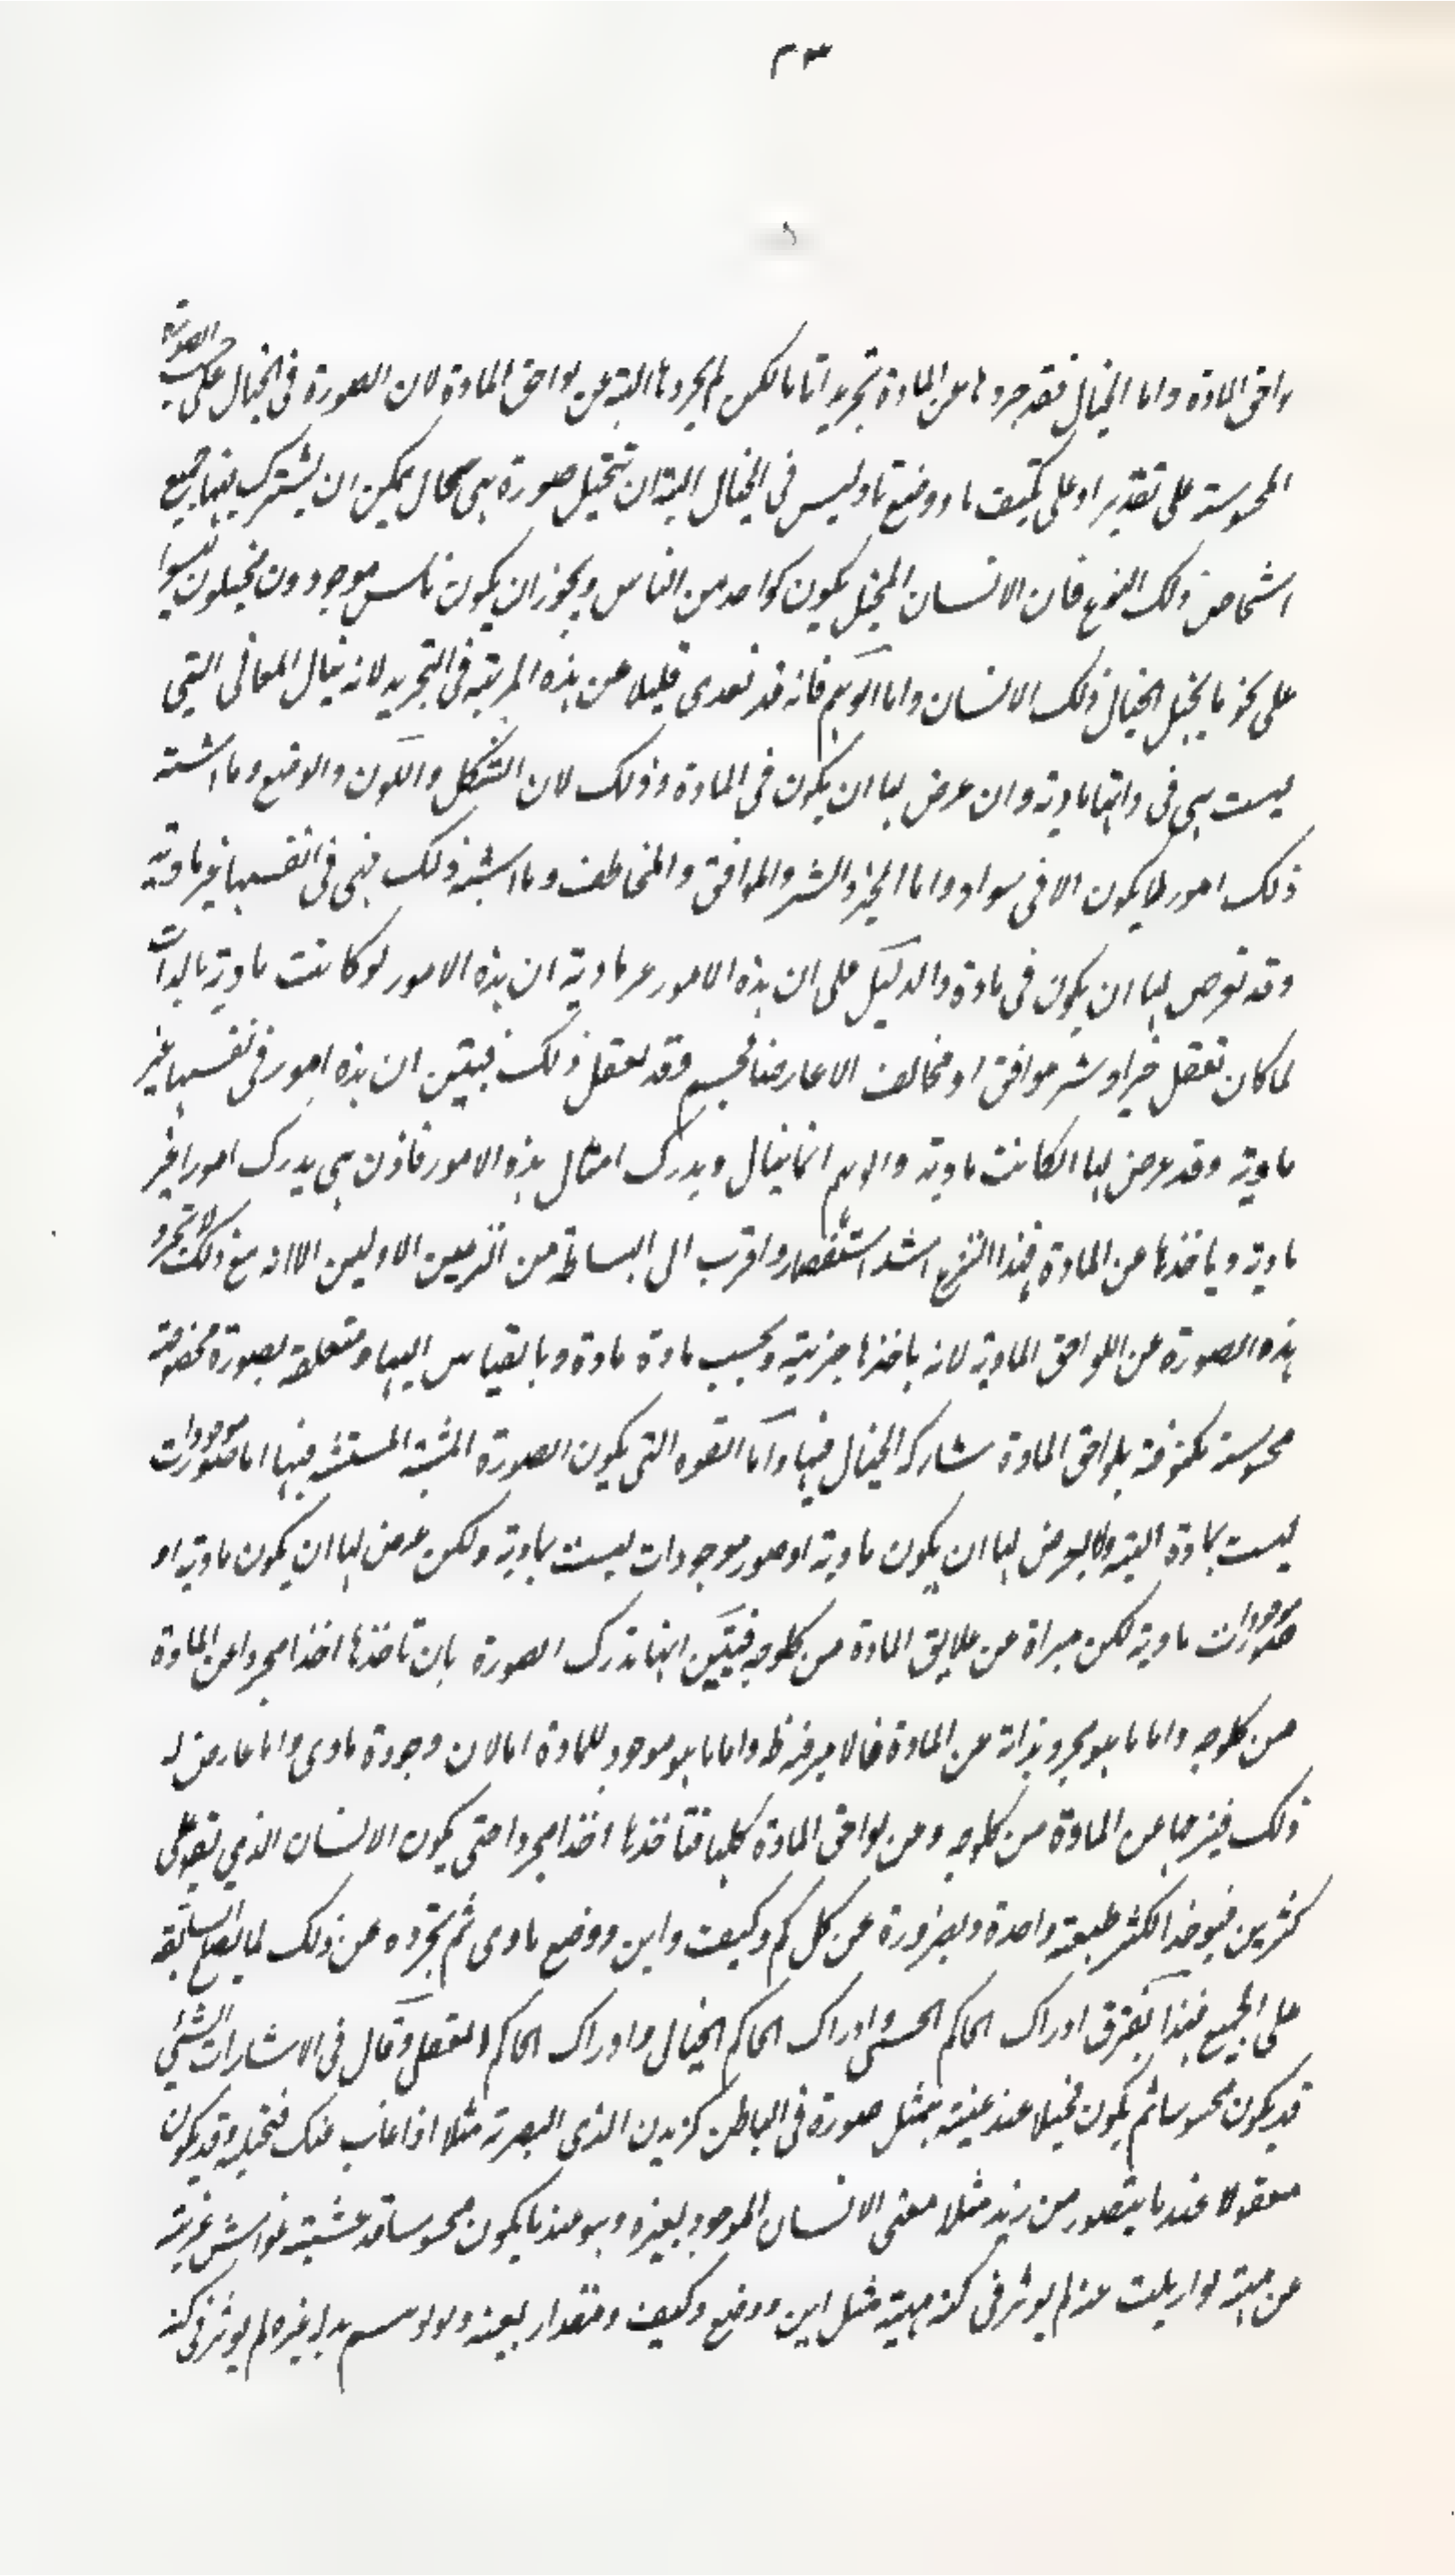 لواحق المادة واما الخيال فقد جردها عن المادة تجريدا تاما لكن لم يجردها البتة عن لواحق المادة لان الصورة فى الخيال على حسب الصورة
المحسوسة على تقدير او على تكيف ما ووضع ما وليس فى الخيال البتة ان تتخيل صورة هى بحال يمكن ان يشترك فيها جميع
اشخاص ذلك النوع فان الانسان المخيل يكون كواحد من الناس ويجوز ان يكون ناس موجودون مخيلون ليسوا
على نحو ما يخيل الخيال ذلك الانسان واما الوهم فانه قد تعدى قليلا عن هذه المرتبة فى التجريد لانه ينال المعانى التى
ليست هى فى ذاتها مادية وان عرض لها ان يكون فى المادة وذلك لان الشكل واللون والوضع وما اشبه
ذلك امور لا يكون الا فى مواد واما الخير والشر والموافق والمخالف وما اشبه ذلك فهى فى انفسها غير مادية
وقد تعرض لها ان يكون فى مادة والدليل على ان هذه الامور غير مادية ان هذه الامور لو كانت مادية بالذات
لما كان تعقل خيرا وشر موافق او مخالف الا عارضا لجسم وقد تعقل ذلك فبيّن ان هذه امور فى نفسها غير
مادية وقد عرض لها ان كانت مادية والوهم انما ينال ويدرك امثال هذه الامور فاذن هى يدرك امورا غير
مادية وياخذها عن المادة فهذا النزع اشد استقصاء واقرب الى البساطة من النزعين الاولين الا انه مع ذلك لا تجرد
هذه الصورة عن اللواحق المادية لانه ياخذها جزئية وبحسب مادة مادة وبالقياس اليها ومتعلقة بصورة محضوصة
محسوسة مكنوفة بلواحق المادة بمشاركة الخيال فيها واما القوه التى يكون الصورة المثبتة المستثبته فيها اما صور موجودات
ليست بمادة البتة ولا يعرض لها ان يكون مادية او صور موجودات ليست بمادية ولكن عرض لها ان يكون مادية او
صور موجودات مادية لكن مبراة عن علايق المادة من كل وجه فبيّن انها تدرك الصورة بان تاخذها اخذا مجردا عن المادة
من كل وجه واما ما هو مجرد بذاته عن المادة فالامر فيه ظ واما ما هو موجود للمادة اما لان وجوده مادى واما عارض له
ذلك فينزعها عن المادة من كل وجه وعن لواحق المادة كلها فتاخذها اخذا مجردا حتى يكون الانسان الذى يقع على
كثيرين فيوخذ الكثير طبيعة واحدة وبضرورة عن كل كم وكيف واين ووضع مادى ثم تجرده عن ذلك لما يصلح
على الجميع فبهذا يفترق ادراك الحاكم الحسى وادراك الحاكم الخيال وادراك الحاكم العقلى وقال فى الاشارات الشئ
قد يكون محسوسا ثم يكون مخيلا عند غيبته بتمثل صورة فى الباطن كزيد الذى ابصرته مثلا اذا غاب عنك فتخيلته وقد يكون
معقولا عندما يتصور من زيد مثلا معنى الانسان الموجود لغيره وهو عندما يكون محسوسا قد غشيته غواش غريبة
عن مهيته لو ازيلت عنه لم يوثر فى كنه مهيته مثل اين ووضع وكيف ومقدار بعينه ولو توهم بدله غيره لم يوثر فى كنه